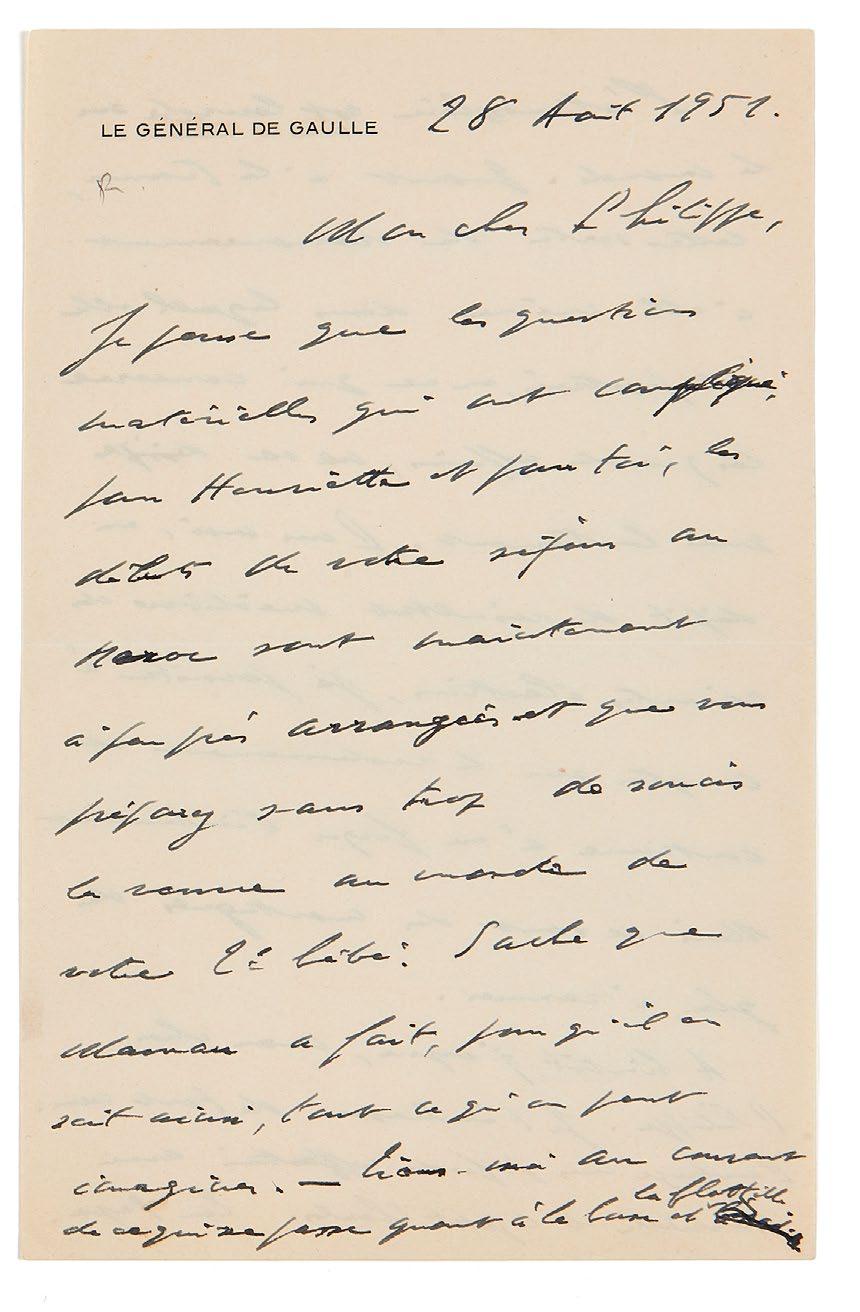 LE GÉNÉRAL DE GAULLE
28 Août 1951.
Mon cher Philippe,
Je pense que les questions
matérielles qui ont compliqué,
pour Henriette et pour toi, les
débuts de votre séjour au
Maroc sont maintenant
à peu près arrangées et que vous
préparez sans trop de soucis
la venue au monde de
votre 2e bébé. Sache que
Maman a fait, pour qu'il en
soit ainsi, tout ce qu'on peut
imaginer. — Tiens-moi au courant
de ce qui se passe quant à la base et la flottille